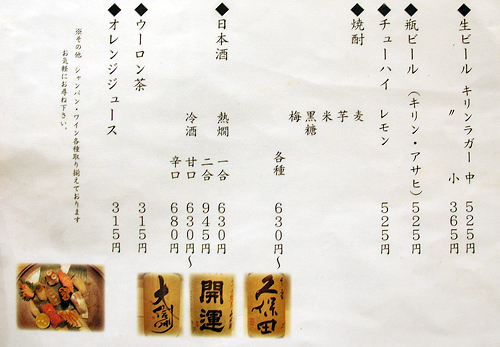 ◆生ビール キリンラガー 中 525円
〃 小 365円
◆瓶ビール (キリン・アサヒ) 525円
◆チューハイ レモン 525円
◆焼酎 麦
芋
米
黒糖
梅
各種 630円〜
◆日本酒 熱燗 一合 630円
二合 945円
冷酒 甘口 630円〜
辛口 680円
◆ウーロン茶 315円
◆オレンジジュース 315円
※その他 シャンパン・ワイン各種取り揃えております
お気軽にお尋ね下さい。
久保田
開運